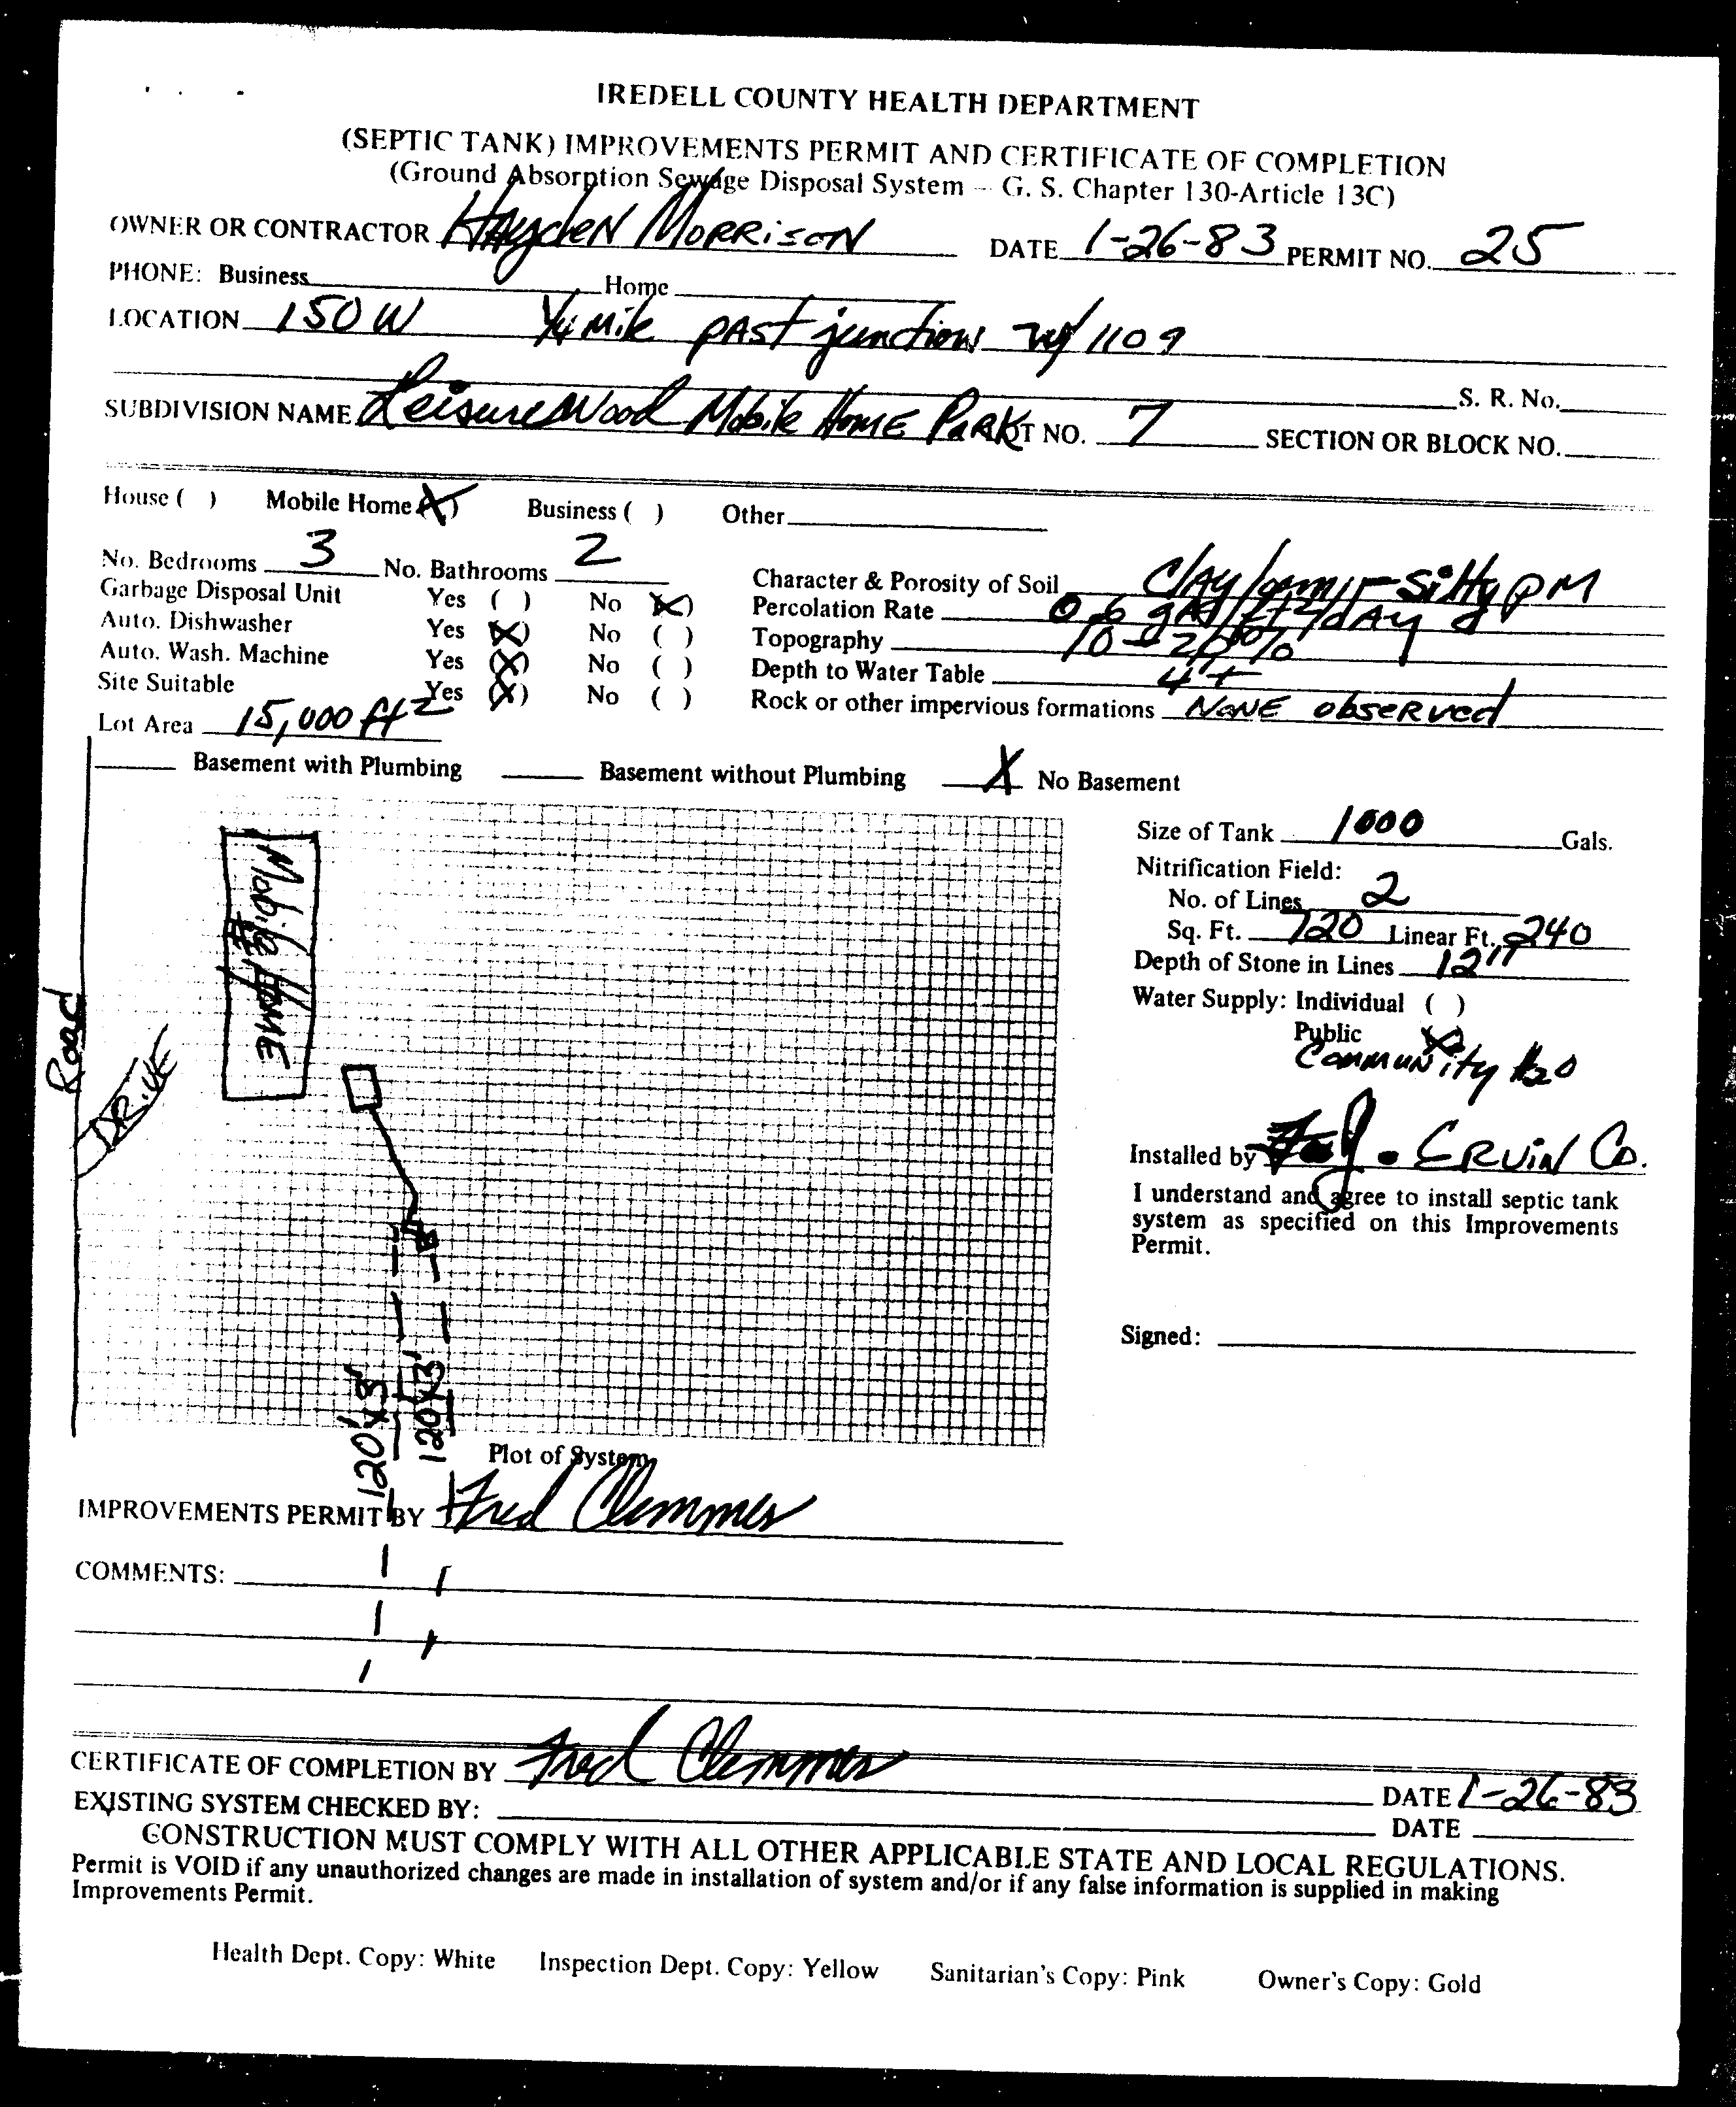 IREDELL COUNTY HEALTH DEPARTMENT
(SEPTIC TANK) IMPROVEMENTS PERMIT AND CERTIFICATE OF COMPLETION
(Ground Absorption Sewage Disposal System -- G. S. Chapter 130-Article 13C)
OWNER OR CONTRACTOR Hayden Morrison DATE 1-26-83 PERMIT NO. 25
PHONE: Business Home
LOCATION 150 W 1/4 Mile past junction w/ 1109
S. R. No.
SUBDIVISION NAME LeisureWood Mobile Home Park LOT NO. 7 SECTION OR BLOCK NO.
House ( ) Mobile Home (X) Business ( ) Other
No. Bedrooms 3 No. Bathrooms 2
Garbage Disposal Unit Yes ( ) No (X)
Auto. Dishwasher Yes (X) No ( )
Auto. Wash. Machine Yes (X) No ( )
Site Suitable Yes (X) No ( )
Lot Area 15,000 ft2
Character & Porosity of Soil Clay loam - silty PM
Percolation Rate 0.6 gal/ft2/day
Topography 10-20%
Depth to Water Table 4'+
Rock or other impervious formations NONE observed
Basement with Plumbing Basement without Plumbing X No Basement
Road
DRIVE
Mobile Home
120' x 3'
120 x 3'
Plot of System
Size of Tank 1000 Gals.
Nitrification Field:
No. of Lines 2
Sq. Ft. 720 Linear Ft. 240
Depth of Stone in Lines 12"
Water Supply: Individual ( )
Public X
Community H2O
Installed by Ervin Co.
I understand and agree to install septic tank
system as specified on this Improvements
Permit.
Signed:
IMPROVEMENTS PERMIT BY Fred Clemmer
COMMENTS:
CERTIFICATE OF COMPLETION BY Fred Clemmer DATE 1-26-83
EXISTING SYSTEM CHECKED BY: DATE
CONSTRUCTION MUST COMPLY WITH ALL OTHER APPLICABLE STATE AND LOCAL REGULATIONS.
Permit is VOID if any unauthorized changes are made in installation of system and/or if any false information is supplied in making
Improvements Permit.
Health Dept. Copy: White Inspection Dept. Copy: Yellow Sanitarian's Copy: Pink Owner's Copy: Gold